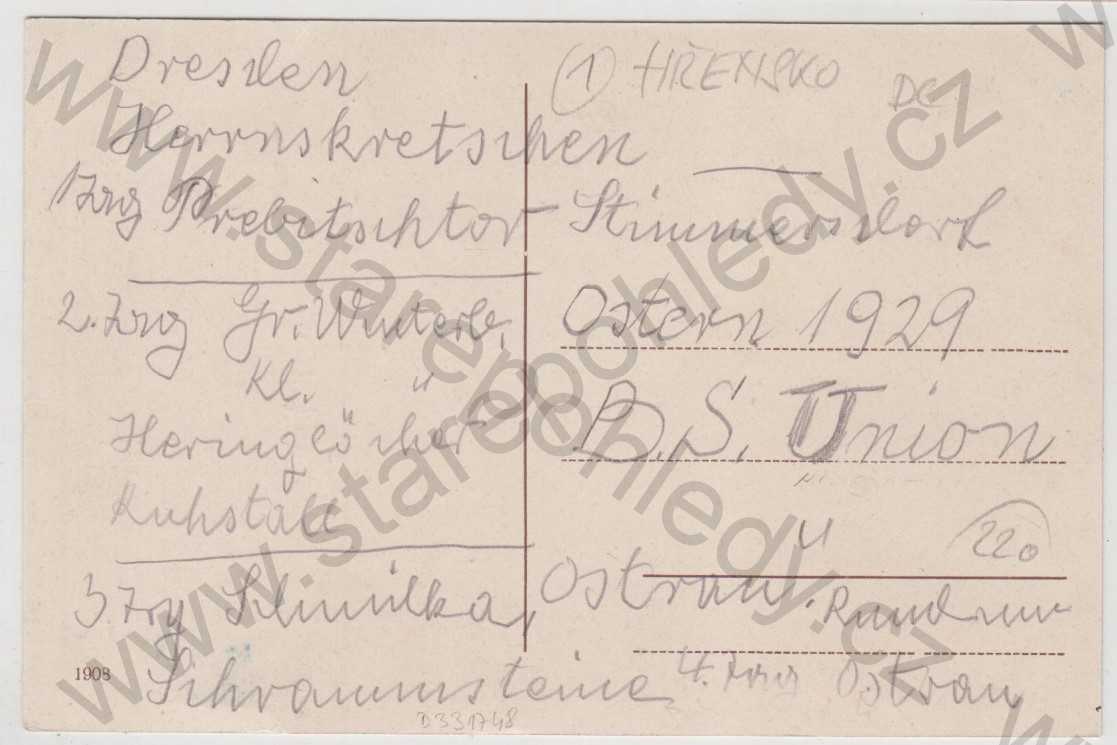 Dresden
Herrnskretschen
1Tag Prebitschtor Stimmersdorf
2. Tag Gr. Winterb.
Kl. "
Heringlöcher
Kuhstall
3 Tag Schmilka, Ostrau.
Schrammsteine
4. Tag Ostrau
① HŘENSKO
DC
Ostern 1929
B. S. Union
"
220
1908
D331748
www.starepohledy.cz
www.starepohledy.cz